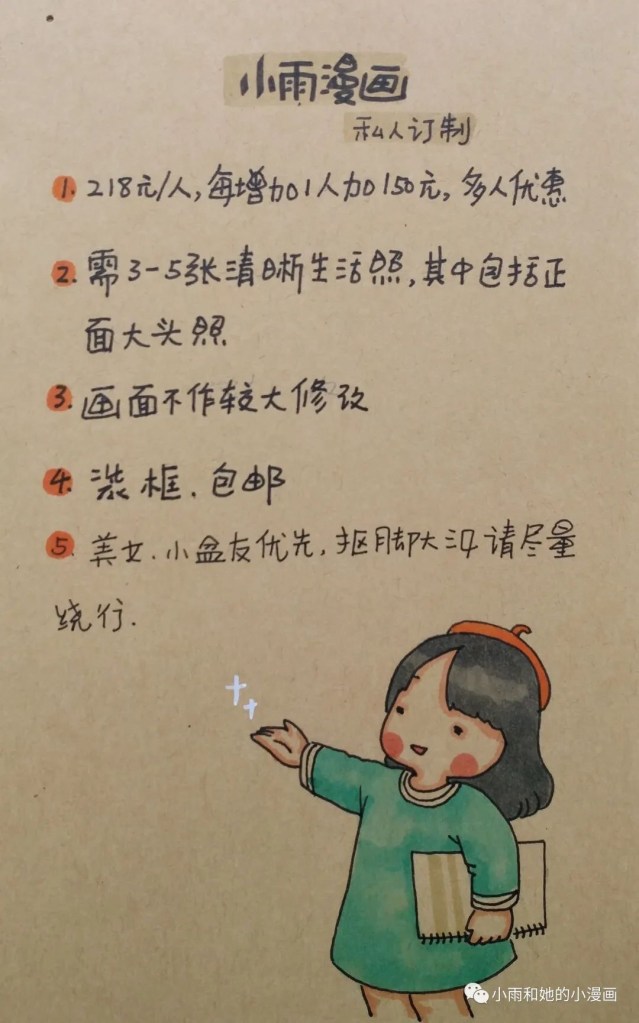 小雨漫画
私人订制
1. 218元/人,每增加1人加150元,多人优惠
2. 需3-5张清晰生活照,其中包括正
面大头照
3. 画面不作较大修改
4. 装框.包邮
5. 美女.小盆友优先,抠脚大汉请尽量
绕行.
小雨和她的小漫画